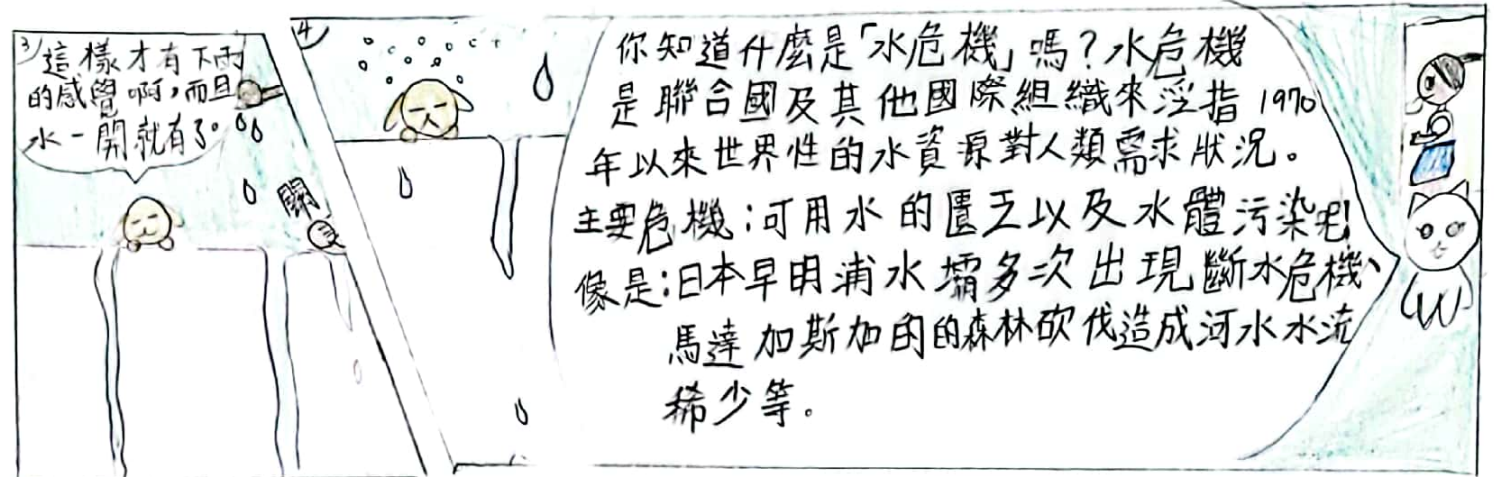 3
這樣才有下雨
的感覺啊，而且
水一開就有了。
關
4
你知道什麼是「水危機」嗎？水危機
是聯合國及其他國際組織來泛指 1970
年以來世界性的水資源對人類需求狀況。
主要危機：可用水的匱乏以及水體污染
像是：日本早明浦水壩多次出現斷水危機、
馬達加斯加的的森林砍伐造成河水水流
稀少等。